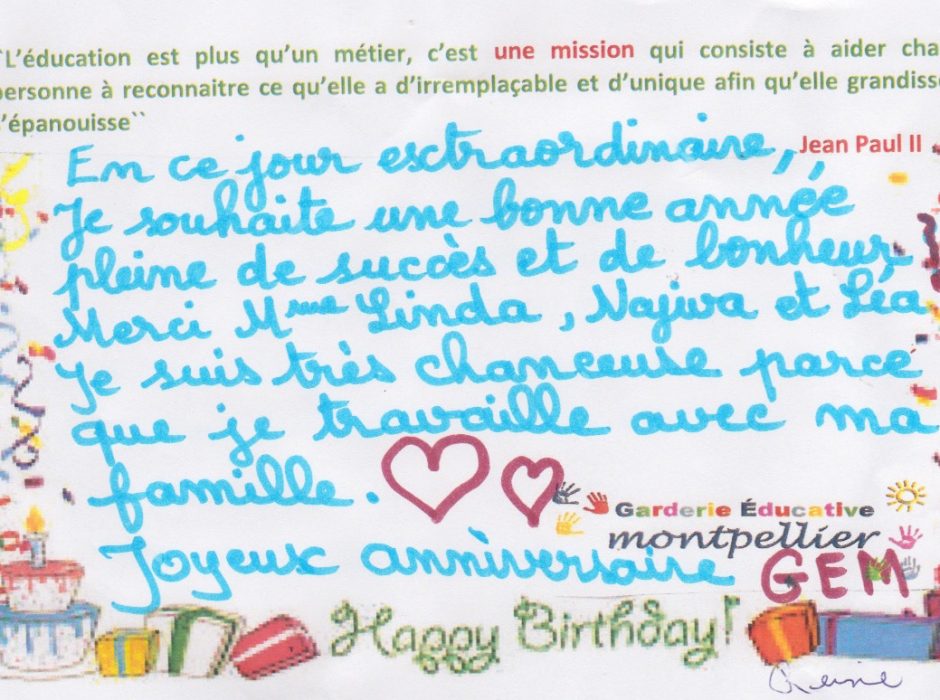 ``L'éducation est plus qu'un métier, c'est une mission qui consiste à aider cha
personne à reconnaitre ce qu'elle a d'irremplaçable et d'unique afin qu'elle grandisse
s'épanouisse``
Jean Paul II
En ce jour esctraordinaire,
Je souhaite une bonne année
pleine de succès et de bonheur,
Merci Mme Linda, Najwa et Léa
Je suis très chanceuse parce
que je travaille avec ma
famille.
Garderie Éducative
montpellier
Joyeux anniversaire GEM
Happy Birthday!
Reine